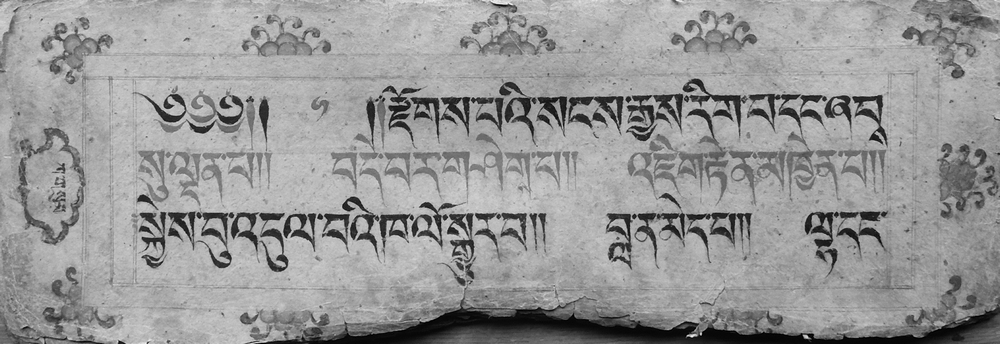 ༄༅༅།། །།རྫོགས་པའི་སངས་རྒྱས་རིག་པ་དང་ཞབ
སུ་ལྡན་པ།།། བདེ་བར་གཤེག་པ།།། འཇིག་རྟེན་མཁྱེན་པ།།།
སྐྱེས་བུ་འདུལ་བའི་ཁ་ལོ་སྒྱུར་བ།།། བླ་ན་མེད་པ།།། ལྷ་དང་